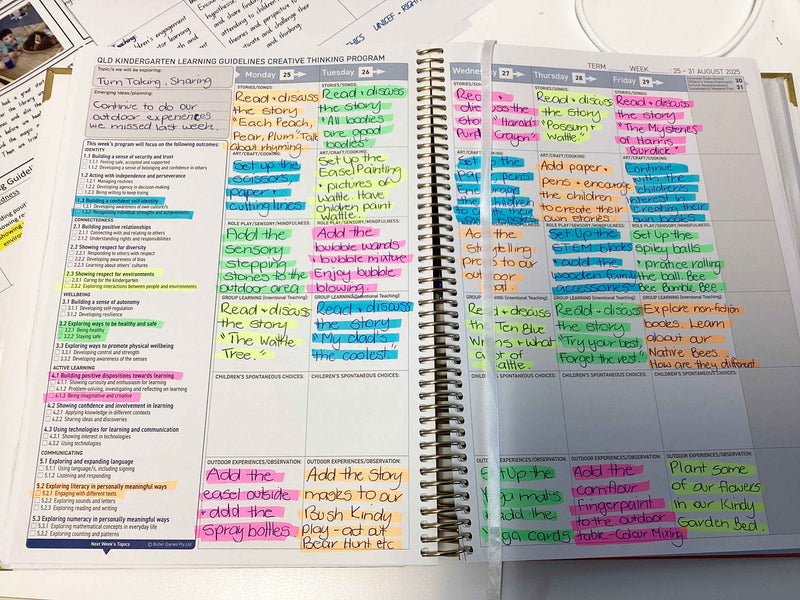 n's engagement
hypothes
and share findi
attending to children's
theories and perspective of
motivate and challenge their
thinking
ICS UNICEF - RIGHT
QLD KINDERGARTEN LEARNING GUIDELINES CREATIVE THINKING PROGRAM
TERM WEEK 25 - 31 AUGUST 2025
Topic/s we will be exploring:
Turn Taking, Sharing
Emerging ideas/planning:
Continue to do our
outdoor experiences
we missed last week.
This week's program will focus on the following outcomes:
IDENTITY
1.1 Building a sense of security and trust
1.1.1 Feeling safe, accepted and supported
1.1.2 Developing a sense of belonging & confidence in others
1.2 Acting with independence and perseverance
1.2.1 Managing routines
1.2.2 Developing agency in decision-making
1.2.3 Being willing to keep trying
1.3 Building a confident self-identity
1.3.1 Developing awareness of own culture/s
1.3.2 Recognising individual strengths and achievements
CONNECTEDNESS
2.1 Building positive relationships
2.1.1 Connecting with and relating to others
2.1.2 Understanding rights and responsibilities
2.2 Showing respect for diversity
2.2.1 Responding to others with respect
2.2.2 Developing awareness of bias
2.2.3 Learning about others' cultures
2.3 Showing respect for environments
2.3.1 Caring for the kindergarten
2.3.2 Exploring interactions between people and environments
WELLBEING
3.1 Building a sense of autonomy
3.1.1 Developing self-regulation
3.1.2 Developing resilience
3.2 Exploring ways to be healthy and safe
3.2.1 Being healthy
3.2.2 Staying safe
3.3 Exploring ways to promote physical wellbeing
3.3.1 Developing control and strength
3.3.2 Developing awareness of the senses
ACTIVE LEARNING
4.1 Building positive dispositions towards learning
4.1.1 Showing curiosity and enthusiasm for learning
4.1.2 Problem-solving, investigating and reflecting on learning
4.1.3 Being imaginative and creative
4.2 Showing confidence and involvement in learning
4.2.1 Applying knowledge in different contexts
4.2.2 Sharing ideas and discoveries
4.3 Using technologies for learning and communication
4.3.1 Showing interest in technologies
4.3.2 Using technologies
COMMUNICATING
5.1 Exploring and expanding language
5.1.1 Using language/s, including signing
5.1.2 Listening and responding
5.2 Exploring literacy in personally meaningful ways
5.2.1 Engaging with different texts
5.2.2 Exploring sounds and letters
5.2.3 Exploring reading and writing
5.3 Exploring numeracy in personally meaningful ways
5.3.1 Exploring mathematical concepts in everyday life
5.3.2 Exploring counting and patterns
Next Week's Topics
© Butler Diaries Pty Ltd
Monday 25
Tuesday 26
Wednes 27
Thursday 28
Friday 29
30
31
STORIES/SONGS:
Read + discuss
the story
"Each Peach,
Pear, Plum". Talk
about rhyming.
STORIES/SONGS:
Read + discuss
the story
"All bodies
are good
bodies"
Rea
discuss the
Story "Harold's
Purple Crayon".
STORIES/SONGS:
Read + discuss
the story
"Possum +
Wattle."
STORIES/SONGS:
Read + discuss
the story
"The Mysteries
of Harris
Burdick."
ART/CRAFT/COOKING:
Set up the
scissors,
paper +
cutting lines
ART/CRAFT/COOKING:
Set up the
Easel Painting
+ pictures of
wattle. Have
children paint
wattle.
ART/CRAFT/COOKING:
the
pens
ART/CRAFT/COOKING:
Add paper +
pens + encourage
the children
to create their
own stories.
ART/CRAFT/COOKING:
Continue
with the
children's
interest in
creating their
own books
ROLE PLAY/SENSORY/MINDFULNESS:
Add the
sensory
stepping
stones to the
outdoor area
ROLE PLAY/SENSORY/MINDFULNESS:
Add the
bubble wands
+ bubble mixture
Enjoy bubble
blowing.
the
telling
to our
ROLE PLAY/SENSORY/MINDFULNESS:
Set up the
STEM Blocks
+ add the
wooden family
accessories
ROLE PLAY/SENSORY/MINDFULNESS:
Set up the
spikey balls
+ pratice rolling
the ball. Bee
Bee Bumble Bee
GROUP LEARNING (Intentional Teaching):
Read + discuss
the story
"The Wattle
Tree."
GROUP LEARNING (Intentional Teaching):
Read + discuss
the story
"My dad's
the coolest".
GROUP LEARNING (Intentional Teaching):
Read discuss
the Ten Blue
Wrens + what
a lot of
Wattle.
GROUP LEARNING (Intentional Teaching):
Read + discuss
the story
"Try your best,
Forget the rest."
GROUP LEARNING (Intentional Teaching):
Explore non-fiction
books. Learn
about our
Native Bees.
How are they different.
CHILDREN'S SPONTANEOUS CHOICES:
CHILDREN'S SPONTANEOUS CHOICES:
CHILDREN'S SPONTANEOUS CHOICES:
CHILDREN'S SPONTANEOUS CHOICES:
CHILDREN'S SPONTANEOUS CHOICES:
OUTDOOR EXPERIENCES/OBSERVATION:
Add the
easel outside
+ add the
spray bottles.
OUTDOOR EXPERIENCES/OBSERVATION:
Add the story
masks to our
Bush Kindy
play - act out
Bear Hunt etc
OUTDOOR EXPERIENCES/OBSERVATION:
Set Up the
Yoga mats
+ add the
yoga cards
OUTDOOR EXPERIENCES/OBSERVATION:
Add the
cornflour
Fingerpaint
to the outdoor
table - Colour Mixing
OUTDOOR EXPERIENCES/OBSERVATION:
Plant some
of our flowers
in our Kindy
Garden Bed.